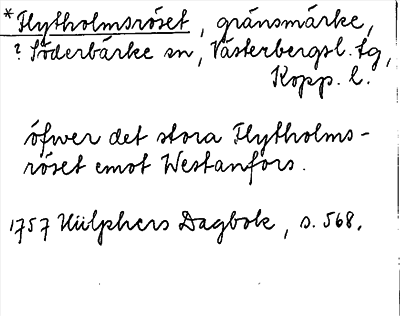 *Flytholmsröset, gränsmärke,
? Söderbärke sn, Västerbergsl. tg,
Kopp. l.
öfwer det stora Flytholms-
röset emot Westanfors.
1757 Hülphers Dagbok, s. 568.